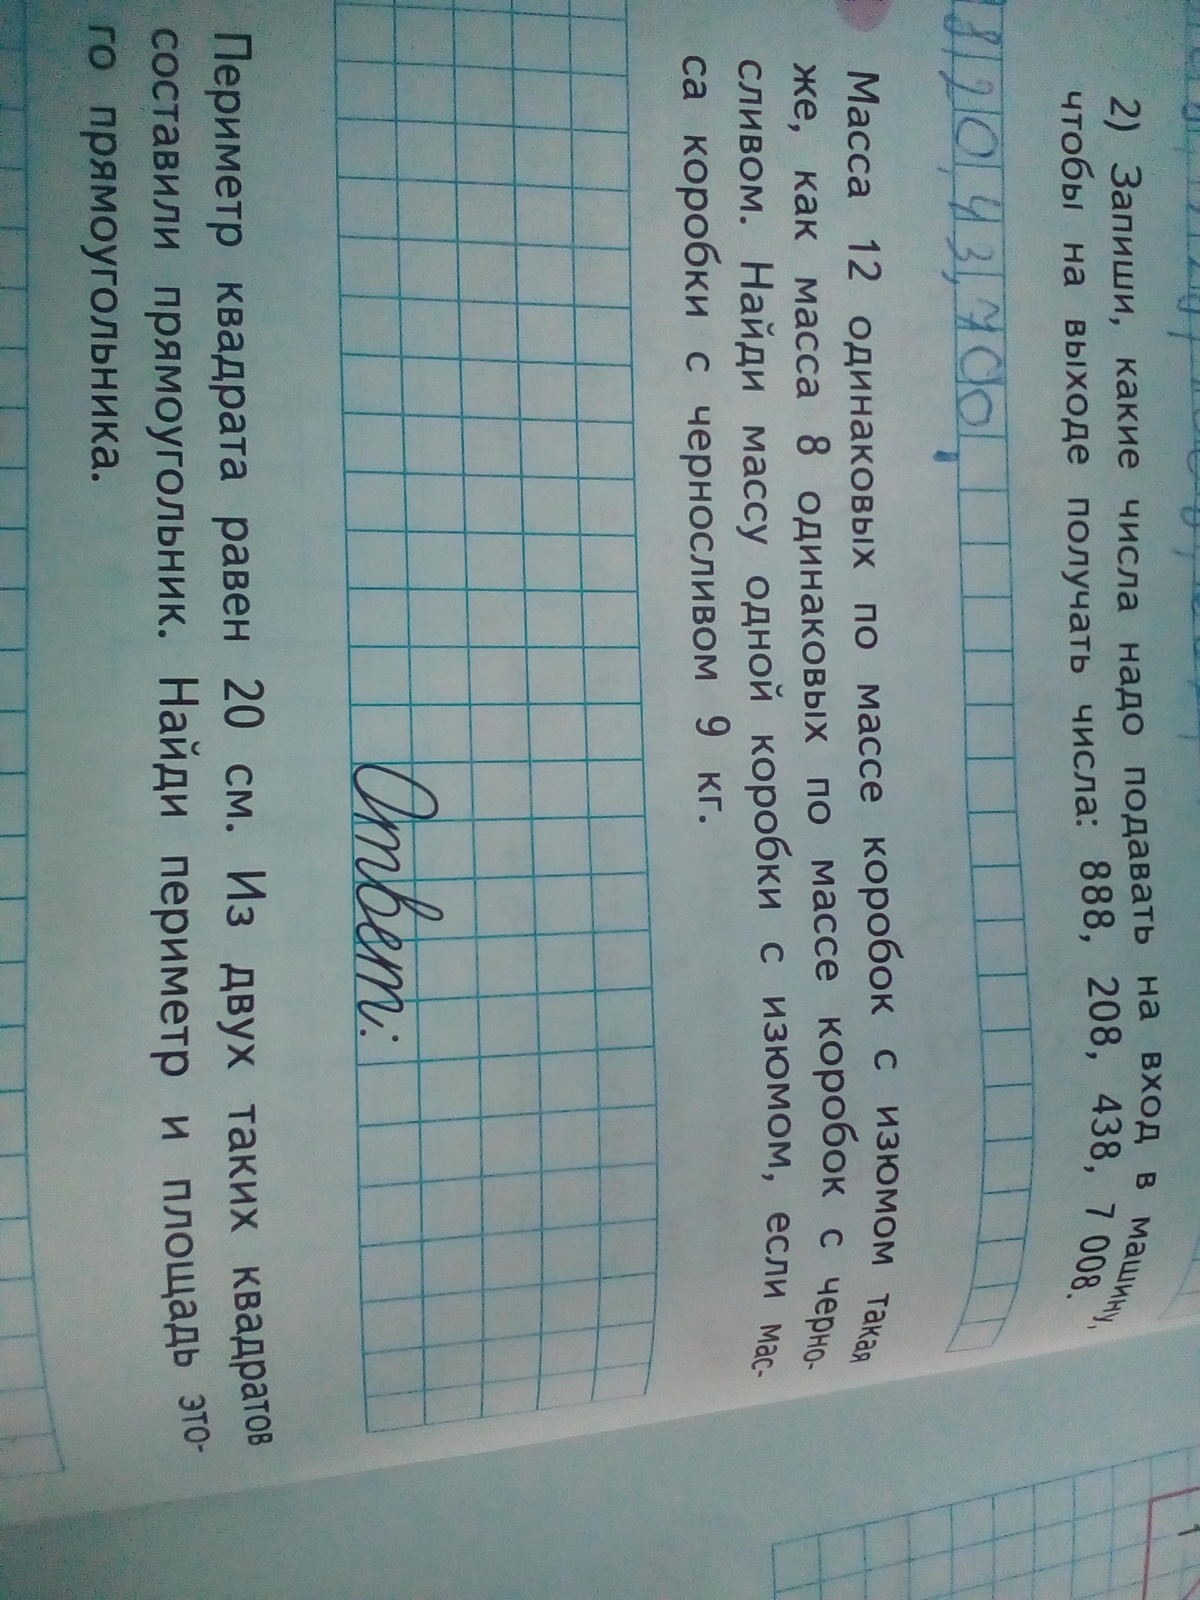 2) Запиши, какие числа надо подавать на вход в машину,
чтобы на выходе получать числа: 888, 208, 438, 7 008.
8, 20, 43, 700,
Масса 12 одинаковых по массе коробок с изюмом такая
же, как масса 8 одинаковых по массе коробок с черно-
сливом. Найди массу одной коробки с изюмом, если мас-
са коробки с черносливом 9 кг.
Ответ:
Периметр квадрата равен 20 см. Из двух таких квадратов
составили прямоугольник. Найди периметр и площадь это-
го прямоугольника.